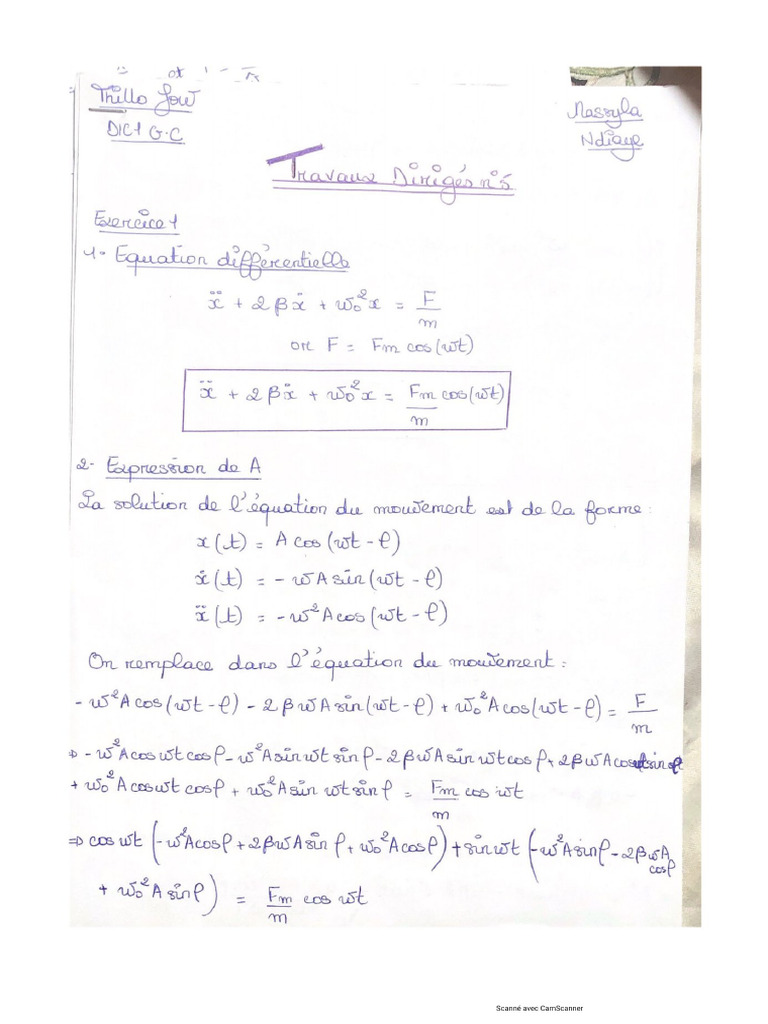 Thillo Sow
DIC1 G.C
Massyla
Ndiaye
Travaux Dirigés n°5
Exercice 1
1- Equation différentielle
ẍ + 2βẍ + ω₀²x = F/m
or F = Fm cos(ωt)
ẍ + 2βẋ + ω₀²x = Fm/m cos(ωt)
2- Expression de A
La solution de l'équation du mouvement est de la forme:
x(t) = A cos(ωt - φ)
ẋ(t) = - ωA sin(ωt - φ)
ẍ(t) = - ω²A cos(ωt - φ)
On remplace dans l'équation du mouvement :
- ω²A cos(ωt - φ) - 2βωA sin(ωt - φ) + ω₀²A cos(ωt - φ) = F/m
⇒ - ω²A cos ωt cos φ - ω²A sin ωt sin φ - 2βωA sin ωt cos φ + 2βωA cos ωt sin φ
+ ω₀²A cos ωt cos φ + ω₀²A sin ωt sin φ = Fm/m cos ωt
⇒ cos ωt (- ω²A cos φ + 2βωA sin φ + ω₀²A cos φ) + sin ωt (- ω²A sin φ - 2βωA cos φ
+ ω₀²A sin φ) = Fm/m cos ωt
Scanné avec CamScanner